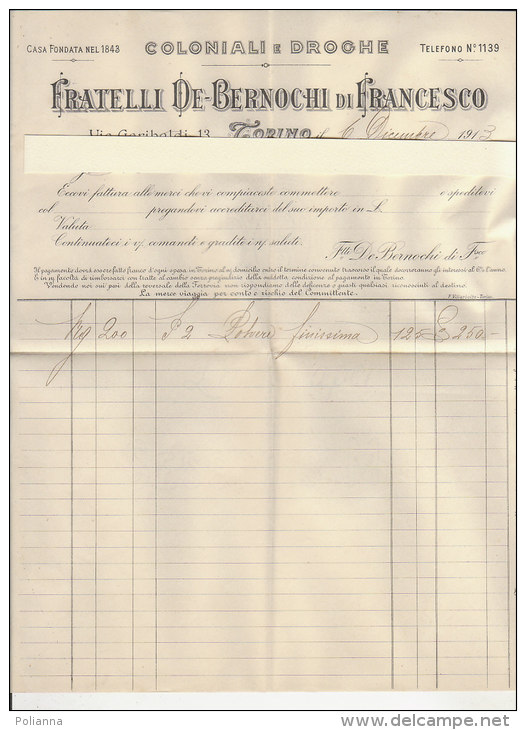 CASA FONDATA NEL 1843 COLONIALI E DROGHE TELEFONO N.º 1139
FRATELLI DE-BERNOCHI DI FRANCESCO
Via Garibaldi, 13 TORINO, il 6 Dicembre 1913
Eccovi fattura alle merci che vi compiaceste commettere e speditevi
col pregandoci accreditarci del suo importo in L.
Valuta
Continuateci i vj. comandi e gradite i nj. saluti.
Flli De Bernochi di Fsco
Il pagamento dovrà essere fatto franco d'ogni spesa in Torino al nj. domicilio entro il termine convenuto trascorso il quale decorreranno gli interessi al 6% l'anno.
È in nj. facoltà di rimborsarci con tratte al cambio senza pregiudizio della suddetta condizione al pagamento in Torino
Vendendo noi sui pesi della reversale della Ferrovia non rispondiamo delle deficenze o guasti qualsiasi riconosciuti al destino.
La merce viaggia per conto e rischio del Committente.
Kg 200 S 2 finissima 125 £ 250 -
Polianna
www.delcampe.net